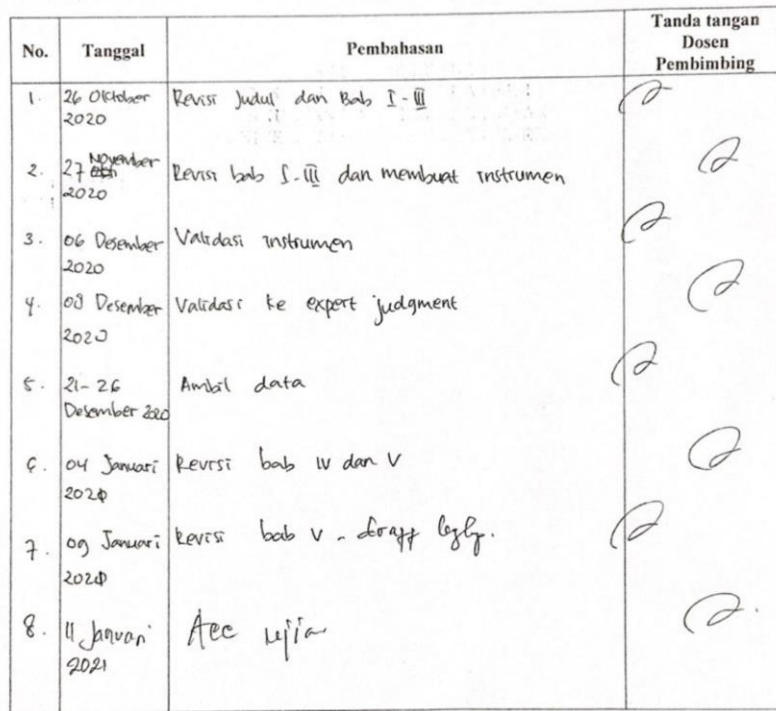 No. Tanggal Pembahasan Tanda tangan Dosen Pembimbing
1. 26 Oktober 2020 Revisi Judul dan Bab I - III
2. 27 November 2020 Revisi bab I - III dan membuat instrumen
3. 06 Desember 2020 Validasi instrumen
4. 08 Desember 2020 Validasi ke expert judgment
5. 21 - 26 Desember 2020 Ambil data
6. 04 Januari 2021 Revisi bab IV dan V
7. 09 Januari 2021 Revisi bab V -
8. 11 Januari 2021 Acc ujian